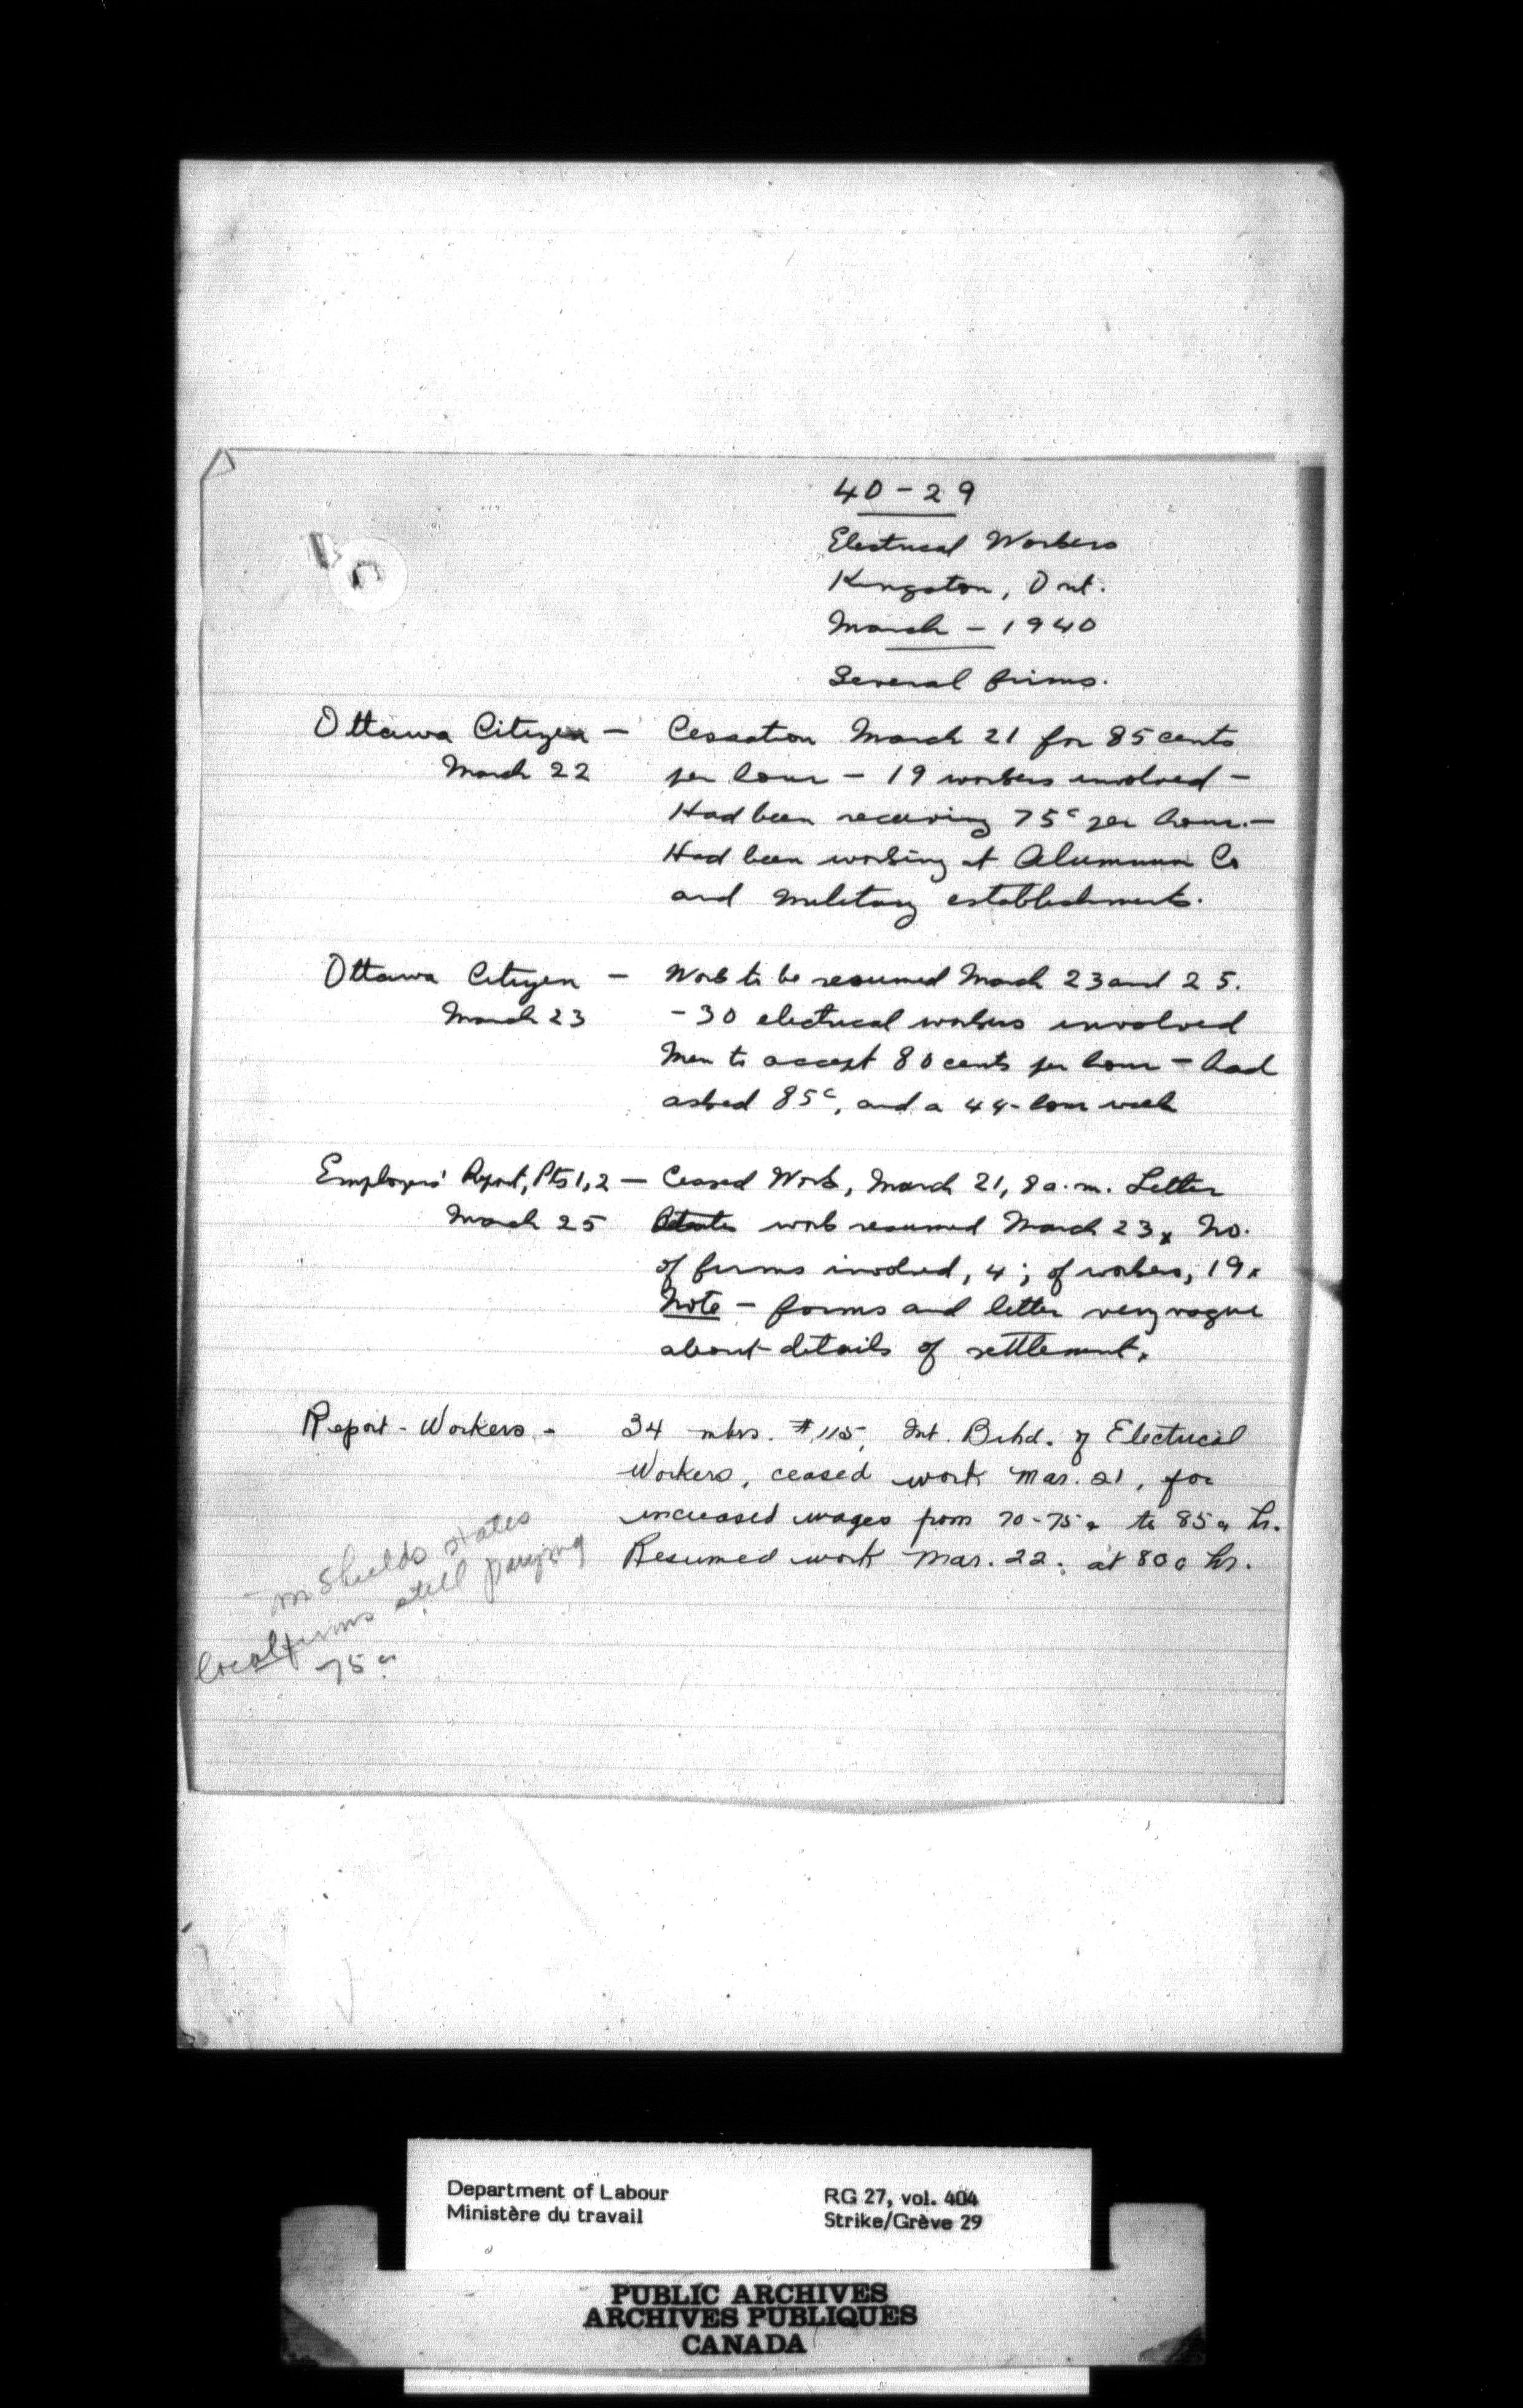 40-29
Electrical Workers
Kingston, Ont.
March - 1940
Several firms.
Ottawa Citizen - Cessation March 21 for 85 cents
March 22 per hour - 19 workers involved -
Had been receiving 75c per hour. -
Had been working at Aluminum Co
and military establishments.
Ottawa Citizen - Work to be resumed March 23 and 25.
March 23 - 30 electrical workers involved
Men to accept 80 cents per hour - had
asked 85c, and a 44-hour week
Employers' Report, Pts 1, 2 - Ceased Work, March 21, 8 a.m. Letter
March 25 states work resumed March 23x No.
of firms involved, 4; of workers, 19x
Note - forms and letter very vague
about details of settlement.
Report - Workers - 34 mbrs. #115, Int. Brhd. of Electrical
Workers, ceased work Mar. 21, for
increased wages from 70-75c to 85c hr.
Resumed work Mar. 22, at 80c hr.
Shields states
local firms still paying
75c
Department of Labour
Ministère du travail
RG 27, vol. 404
Strike/Grève 29
PUBLIC ARCHIVES
ARCHIVES PUBLIQUES
CANADA